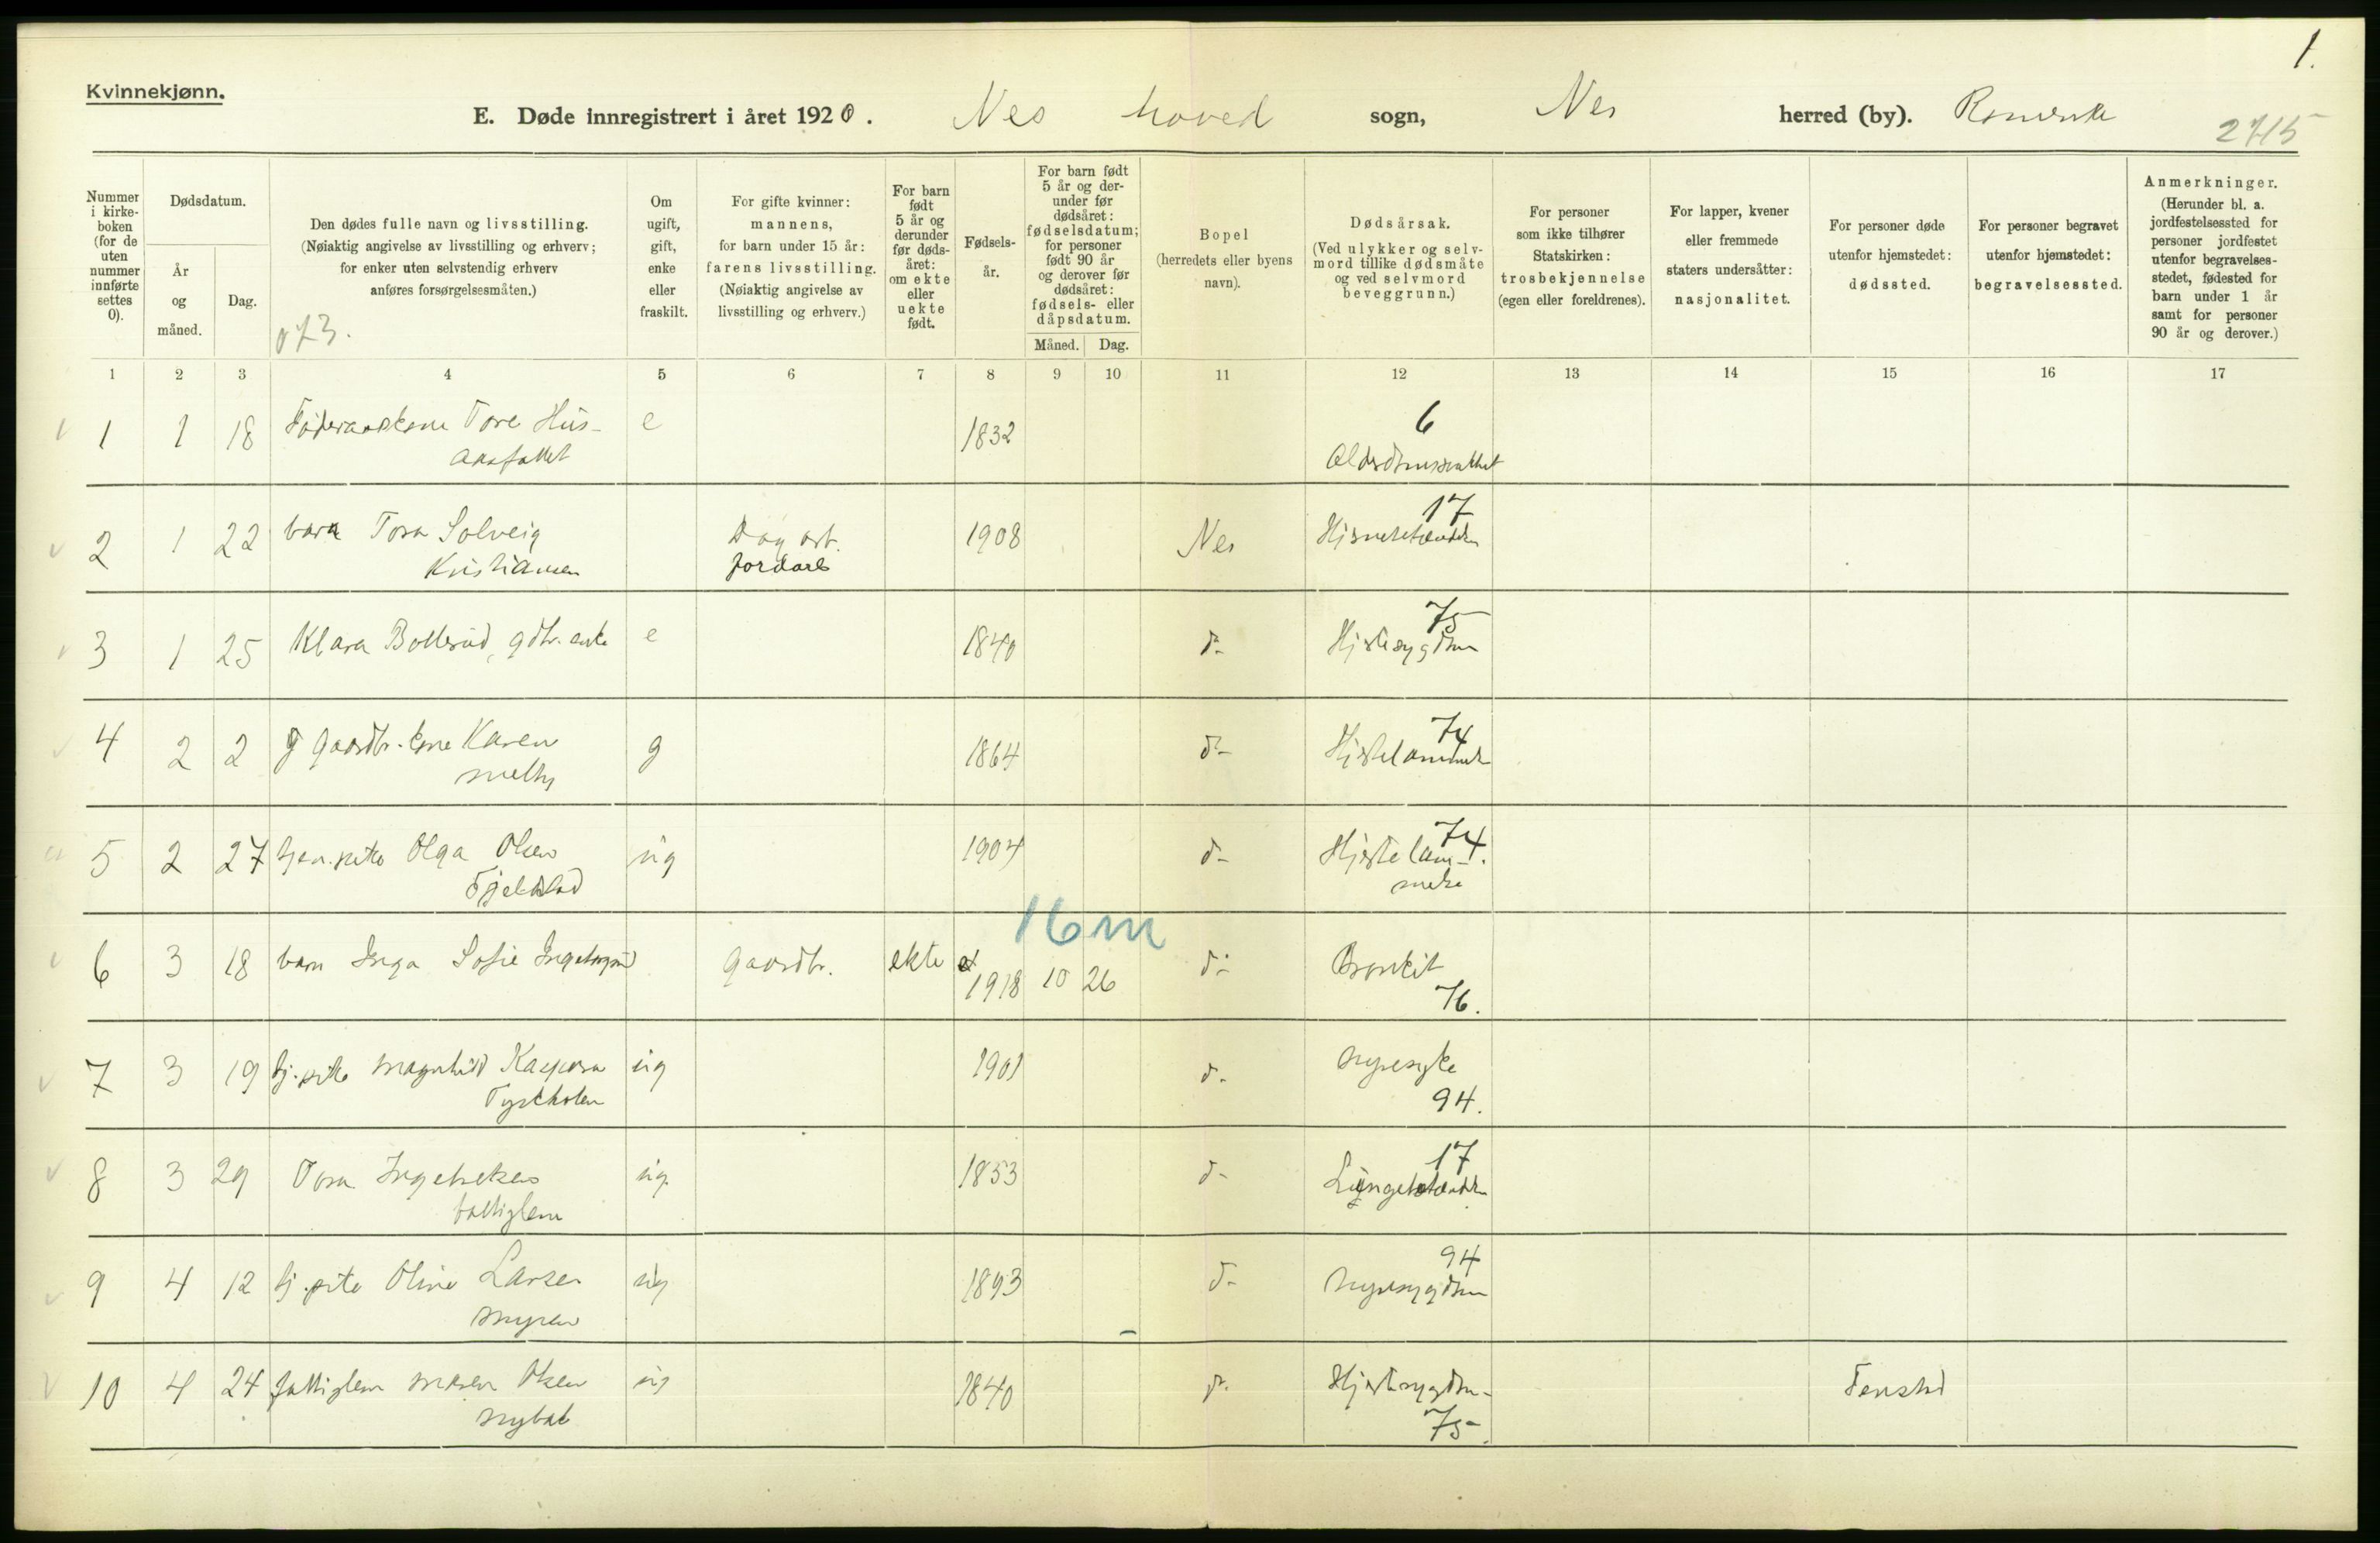 1.
Kvinnekjønn.
E. Døde innregistrert i året 1920. Nes hoved sogn, Nes herred (by). Romerike
2715
Nummer i kirke-boken (for de uten nummer innførte settes 0).
Dødsdatum.
År og måned.
Dag.
Den dødes fulle navn og livsstilling.
(Nøiaktig angivelse av livsstilling og erhverv;
for enker uten selvstendig erhverv
anføres forsørgelsesmåten.)
073.
Om ugift, gift, enke eller fraskilt.
For gifte kvinner:
mannens,
for barn under 15 år:
farens livsstilling.
(Nøiaktig angivelse av
livsstilling og erhverv.)
For barn født 5 år og derunder før døds-året: om ekte eller uekte født.
Fødsels-år.
For barn født 5 år og der-under før dødsåret: fødselsdatum; for personer født 90 år og derover før dødsåret: fødsels- eller dåpsdatum.
Måned. Dag.
Bopel
(herredets eller byens
navn).
Dødsårsak.
(Ved ulykker og selv-
mord tillike dødsmåte
og ved selvmord
beveggrunn.)
For personer
som ikke tilhører
Statskirken:
trosbekjennelse
(egen eller foreldrenes).
For lapper, kvener
eller fremmede
staters undersåtter:
nasjonalitet.
For personer døde
utenfor hjemstedet:
dødssted.
For personer begravet
utenfor hjemstedet:
begravelsessted.
Anmerkninger.
(Herunder bl. a.
jordfestelsessted for
personer jordfestet
utenfor begravelses-
stedet, fødested for
barn under 1 år
samt for personer
90 år og derover.)
1 2 3 4 5 6 7 8 9 10 11 12 13 14 15 16 17
1 1 18 Føderaadskone Tore Hus- e 1832 6
Alderdomssvakhet
2 1 22 barn Tora Solveig Dag arb. 1908 Nes 17
Kristiansen jordarb Hjernebetændelse
3 1 25 Klara Bollerud, gdbr. enke e 1840 d- 75
Hjertesygdom
4 2 2 gaardbr. kone Karen g 1864 d- 74
Melby Hjertelammelse
5 2 27 tjen.pike Olga Olsen ug 1904 d- 74.
Fjellstad Hjertelam-
melse
16 m
6 3 18 barn Inga Sofie gaardbr. ekte 1918 10 26 d- Bronkit
76.
7 3 19 tj.pike Magnhild Kaspara ug 1901 d- Nyresyke
94.
8 3 29 Tora Ingebretsen ug. 1853 d- 17
fattiglem Lungebetændelse
9 4 12 tj.pike Oline Larsen ug 1893 d- 94
Myren Nyresygdom
10 4 24 fattiglem Maren Olsen ug 1840 d- Hjertesygdom- Fenstad
75-